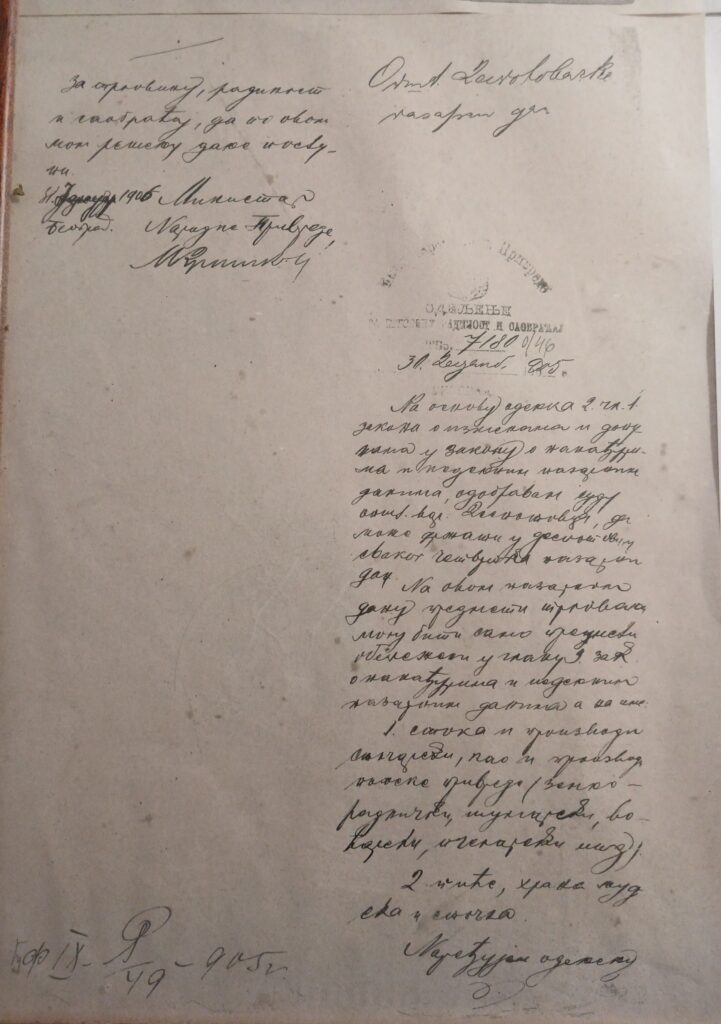 за трговину, радиност
и саобраћај, да по овом
мом решењу даље посту-
пи.
1906 Министар
Београд. Народне Привреде,
Општ.
пазарни дан
ОДЕЉЕЊЕ
ЗА ТРГОВИНУ РАДИНОСТ И САОБРАЋАЈ
7180
30. Децемб. 905.
На основу одељка 2. чл. 1.
закона о изменама и допу-
нама у закону о панађури-
ма и недељним пазарним
данима, одобравам суду
општ. да
може држати у
сваког четвртка пазарни
дан.
На овом пазарном
дану предмети трговања
могу бити само предмети
обележени у члану 9. зак.
о панађурима и недељним
пазарним данима а на име:
1. стока и производи
сточарски, као и производи
пољске привреде (земљо-
раднички, шумарски, во-
ћарски, пчеларски итд).
2. пиће, храна људ
ска и сточна.
Наређујем одељењу
IX - 49 - 905 г.